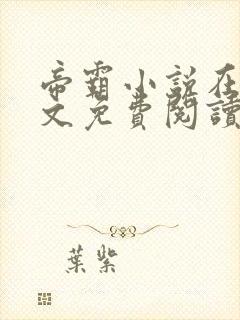 帝霸小說在
文免費閱讀
葉紫